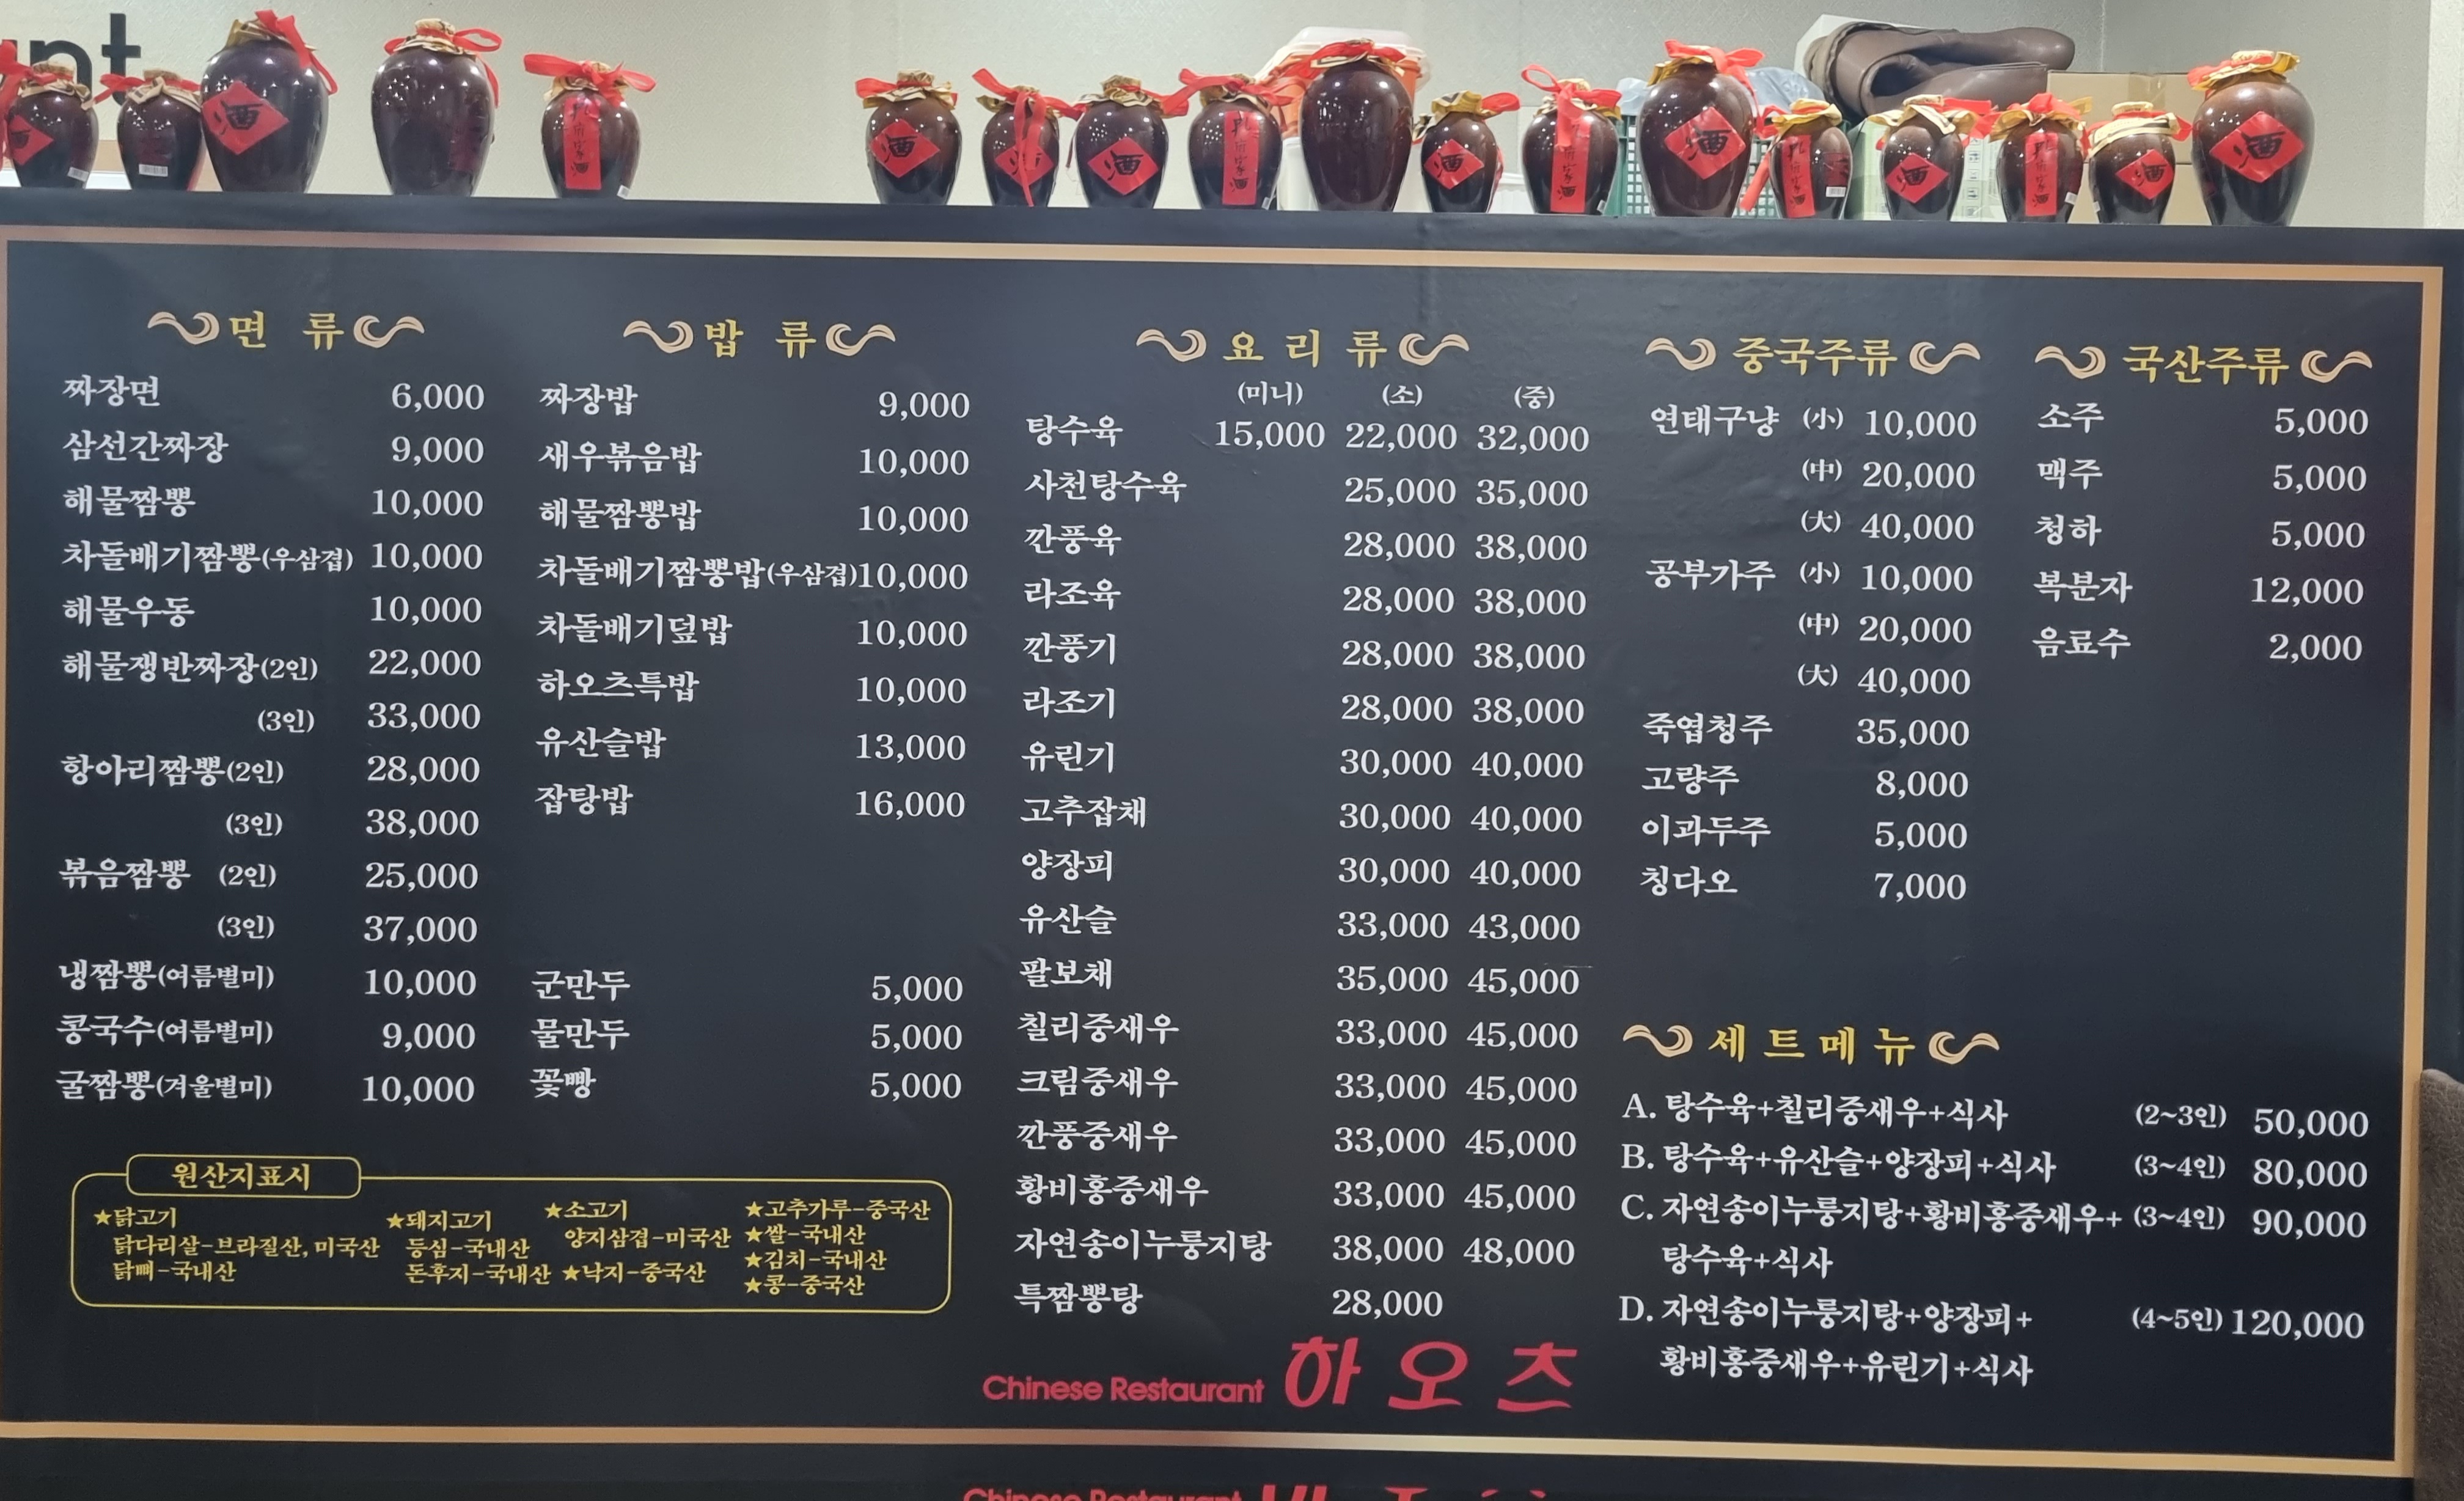 nt
酒
酒
酒
酒
酒
酒
酒
酒
酒
酒
면 류
짜장면 6,000
삼선간짜장 9,000
해물짬뽕 10,000
차돌배기짬뽕(우삼겹) 10,000
해물우동 10,000
해물쟁반짜장(2인) 22,000
(3인) 33,000
항아리짬뽕(2인) 28,000
(3인) 38,000
볶음짬뽕 (2인) 25,000
(3인) 37,000
냉짬뽕(여름별미) 10,000
콩국수(여름별미) 9,000
굴짬뽕(겨울별미) 10,000
밥 류
짜장밥 9,000
새우볶음밥 10,000
해물짬뽕밥 10,000
차돌배기짬뽕밥(우삼겹)10,000
차돌배기덮밥 10,000
하오츠특밥 10,000
유산슬밥 13,000
잡탕밥 16,000
군만두 5,000
물만두 5,000
꽃빵 5,000
원산지표시
★닭고기
닭다리살-브라질산, 미국산
닭뼈-국내산
★돼지고기
등심-국내산
돈후지-국내산
★소고기
양지삼겹-미국산
★낙지-중국산
★고추가루-중국산
★쌀-국내산
★김치-국내산
★콩-중국산
요 리 류
(미니) (소) (중)
탕수육 15,000 22,000 32,000
사천탕수육 25,000 35,000
깐풍육 28,000 38,000
라조육 28,000 38,000
깐풍기 28,000 38,000
라조기 28,000 38,000
유린기 30,000 40,000
고추잡채 30,000 40,000
양장피 30,000 40,000
유산슬 33,000 43,000
팔보채 35,000 45,000
칠리중새우 33,000 45,000
크림중새우 33,000 45,000
깐풍중새우 33,000 45,000
황비홍중새우 33,000 45,000
자연송이누룽지탕 38,000 48,000
특짬뽕탕 28,000
Chinese Restaurant 하오츠
중국주류
연태구냥 (小) 10,000
(中) 20,000
(大) 40,000
공부가주 (小) 10,000
(中) 20,000
(大) 40,000
죽엽청주 35,000
고량주 8,000
이과두주 5,000
칭다오 7,000
국산주류
소주 5,000
맥주 5,000
청하 5,000
복분자 12,000
음료수 2,000
세트메뉴
A. 탕수육+칠리중새우+식사 (2~3인) 50,000
B. 탕수육+유산슬+양장피+식사 (3~4인) 80,000
C. 자연송이누룽지탕+황비홍중새우+ (3~4인) 90,000
탕수육+식사
D. 자연송이누룽지탕+양장피+ (4~5인) 120,000
황비홍중새우+유린기+식사
Chinese Restaurant